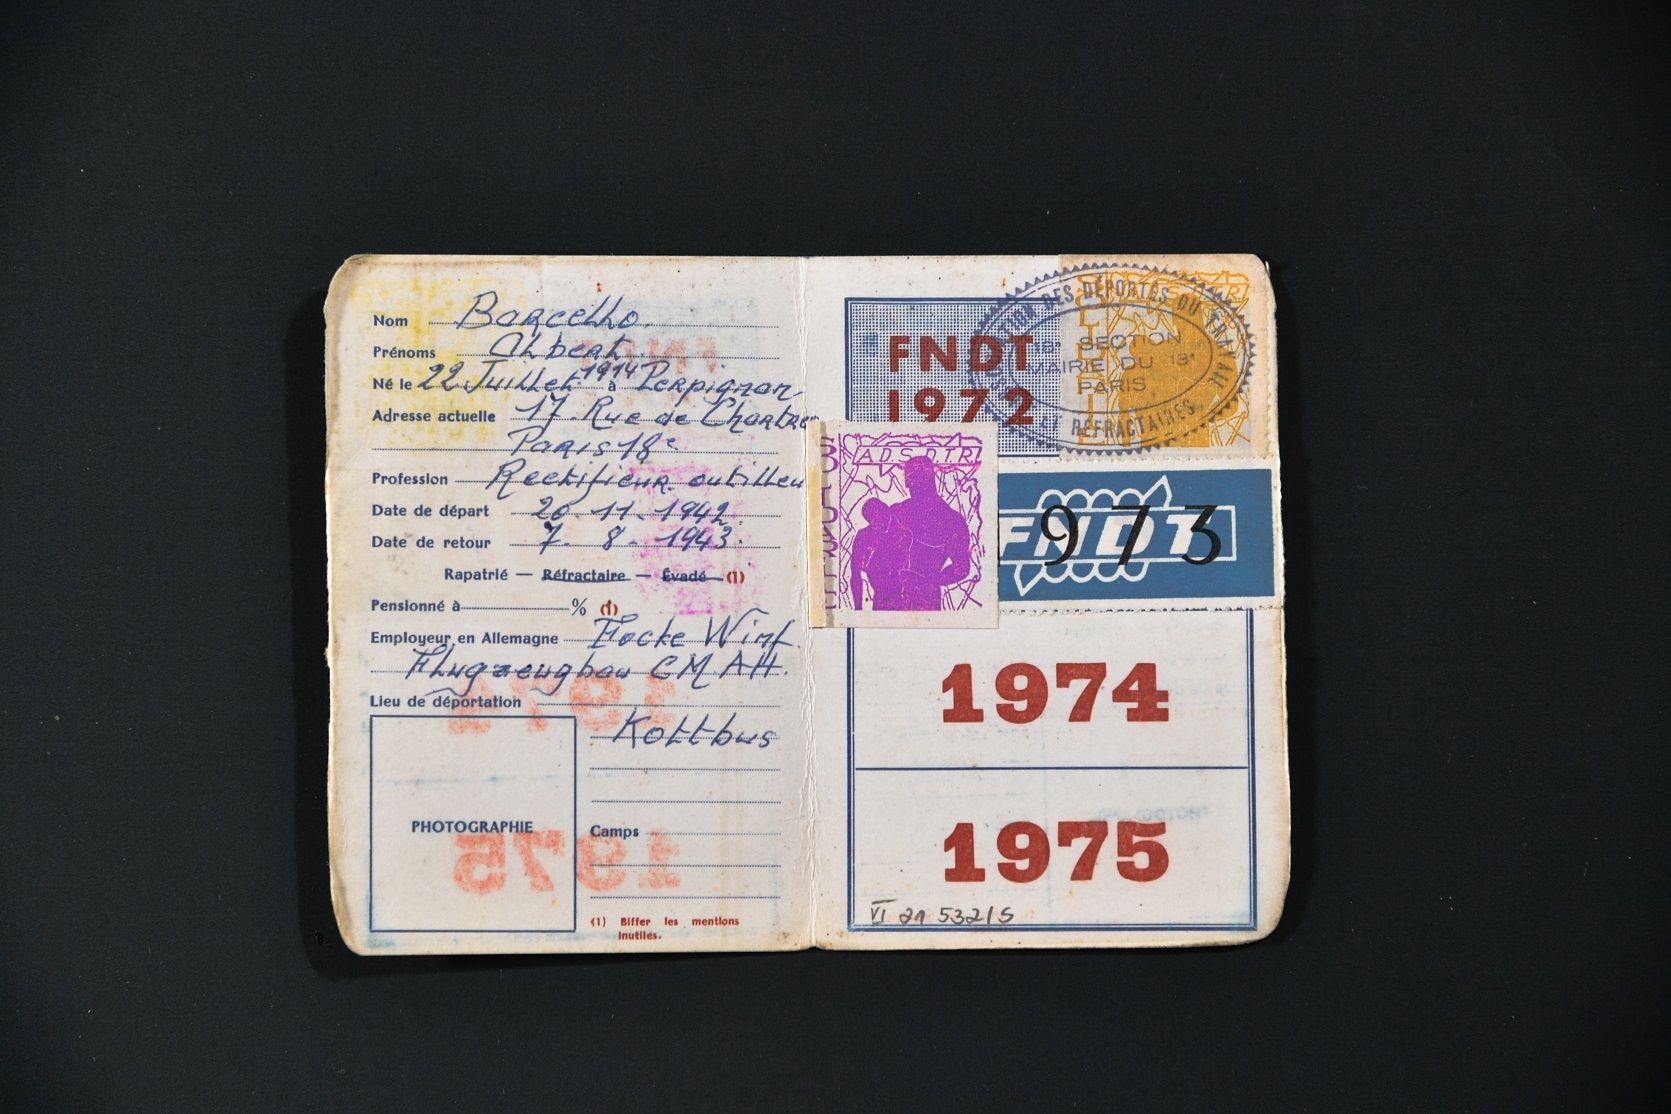 Nom Barcelho
Prénoms Albert
Né le 22 Juillet 1914 à Perpignan
Adresse actuelle 17 Rue de Chartre
Paris 18e
Profession Rectifieur outilleu
Date de départ 26-11-1942.
Date de retour 7-8-1943.
Rapatrié — Réfractaire — Évadé (1)
Pensionné à % (1)
Employeur en Allemagne Focke
Flugzeugbau
Lieu de déportation
Kottbus
PHOTOGRAPHIE
Camps
(1) Biffer les mentions
inutiles.
FNDT
1972
DES DÉPORTÉS DU TRAVAIL
ET RÉFRACTAIRES
18e SECTION
MAIRIE DU 18e
PARIS
A.D.S.D.T.R.
FNDT
1973
1974
1975
VI 21 532/5